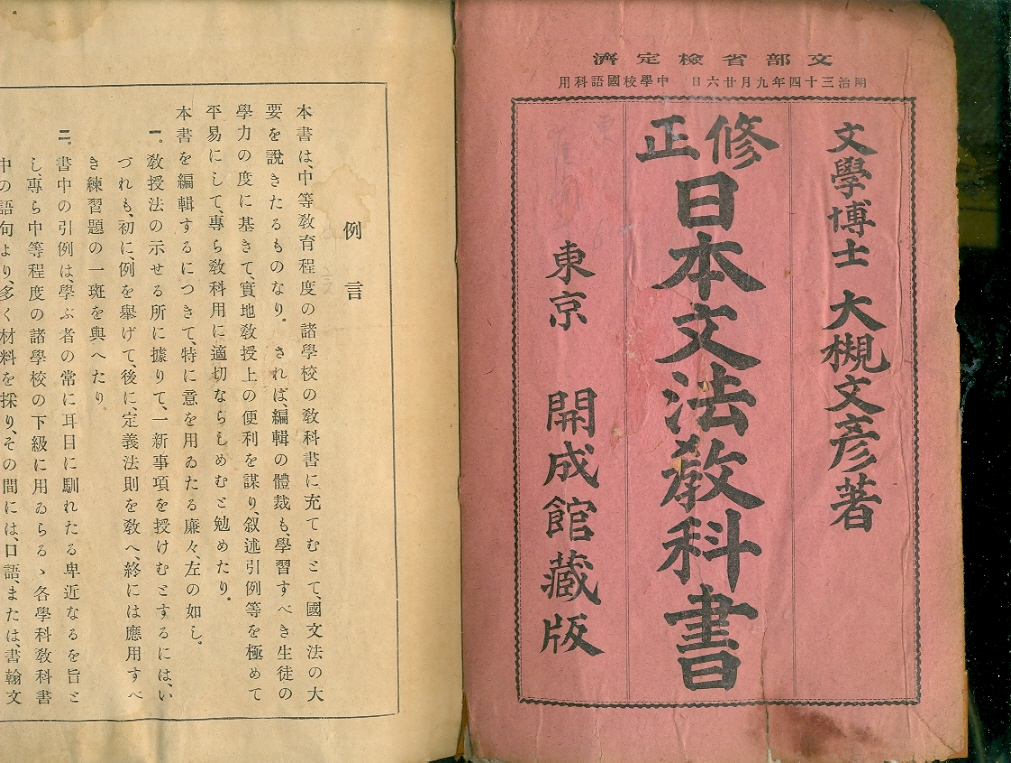 文部省檢定濟
明治三十四年九月廿六日 中學校國語科用
文學博士 大槻文彦著
修正
日本文法教科書
東京 開成館藏版
例言
本書は、中等敎育程度の諸學校の敎科書に充てむとて、國文法の大
要を說きたるものなり。されば、編輯の體裁も、學習すべき生徒の
學力の度に基きて、實地敎授上の便利を謀り、叙述引例等を極めて
平易にして、專ら敎科用に適切ならしめむと勉めたり。
本書を編輯するにつきて、特に意を用ゐたる廉々、左の如し。
一、敎授法の示せる所に據りて、一新事項を授けむとするには、い
づれも、初に、例を舉げて、後に、定義法則を敎へ、終には應用すべ
き練習題の一斑を與へたり
二、書中の引例は、學ぶ者の常に耳目に馴れたる卑近なるを旨と
し、專ら中等程度の諸學校の下級に用ゐらるゝ各學科敎科書
中の語句より、多く材料を採り、その間には、口語、または、書翰文